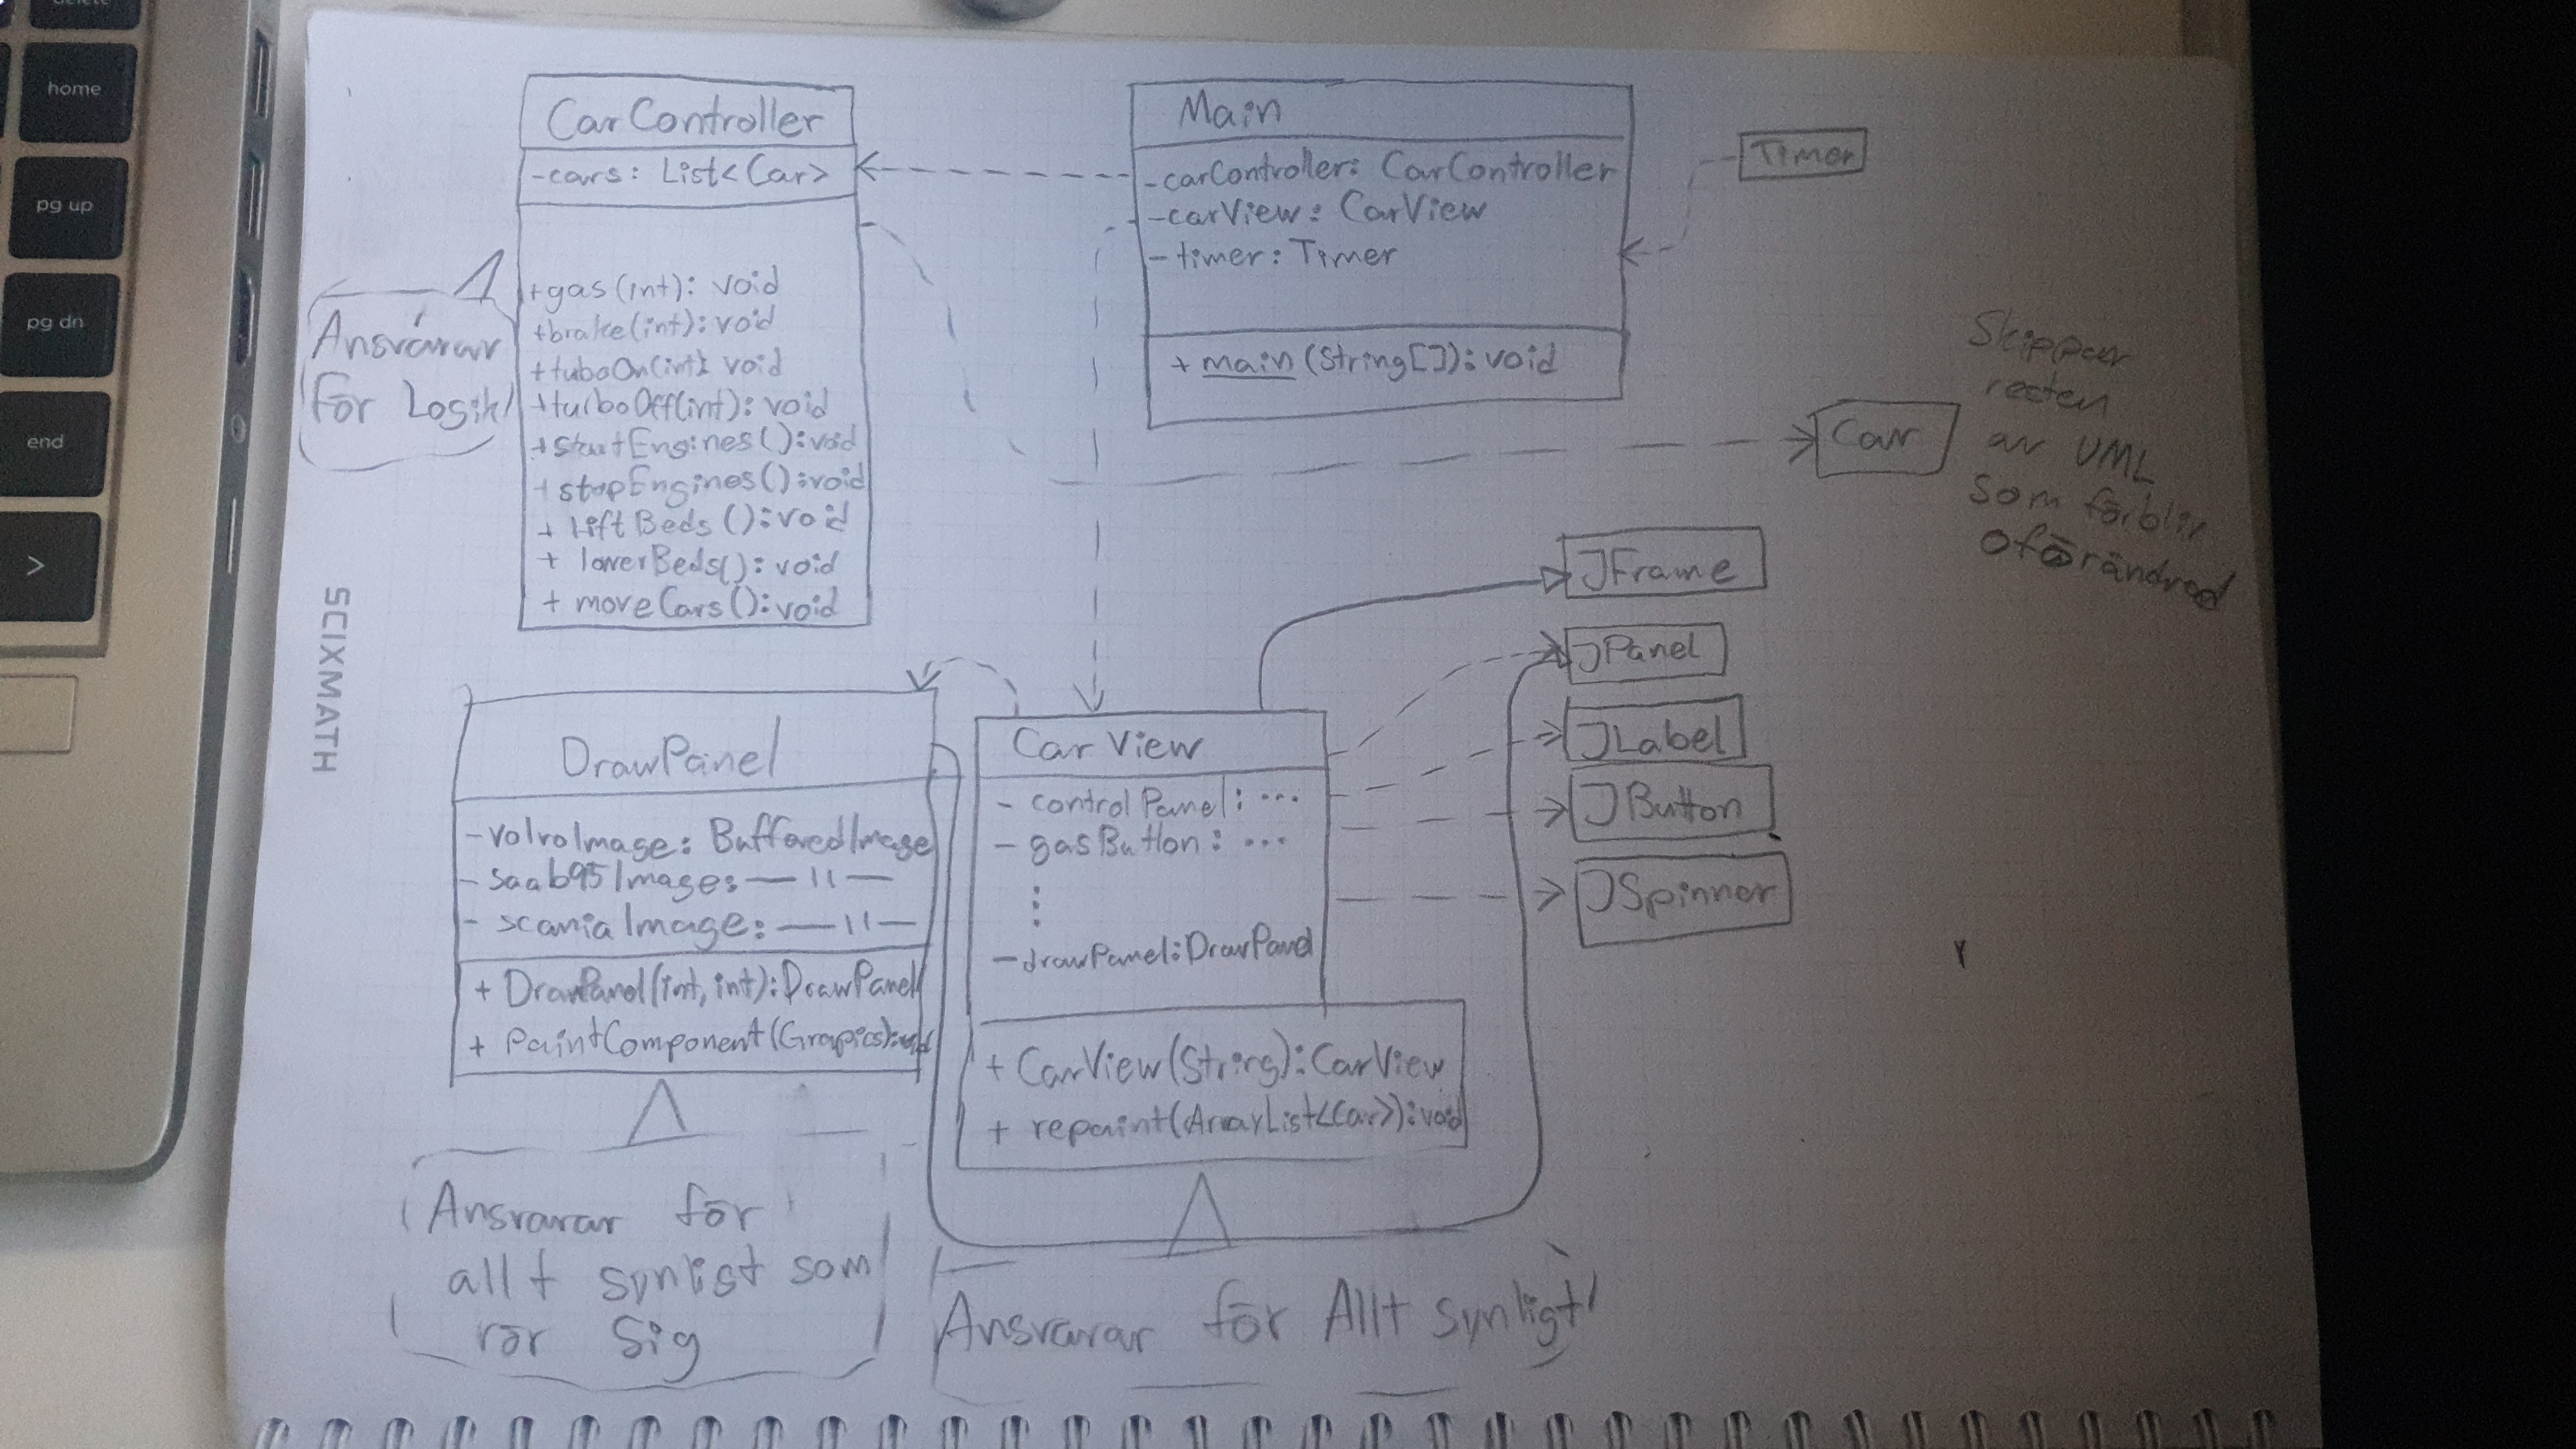 delete
home
pg up
pg dn
end
>
SCIXMATH
CarController
-cars: List<Car>
+gas(int): void
+brake(int): void
+tuboOn(int): void
+turboOff(int): void
+startEngines():void
+stopEngines():void
+ liftBeds():void
+ lowerBeds(): void
+ moveCars():void
Ansvarar
för Logik
Main
-carController: CarController
-carView: CarView
-timer: Timer
+ main (String[]): void
Timer
Car
Skippar
resten
av UML
som förblir
oförändrad
JFrame
JPanel
JLabel
JButton
JSpinner
DrawPanel
-volvoImage: BufferedImage
-saab95Image: — 11 —
- scaniaImage: — 11 —
+ DrawPanel(int, int): DrawPanel
+ paintComponent(Grapics):void
Ansvarar för
allt synligt som
rör sig
Car View
- controlPanel: ...
- gasButton: ...
⋮
- drawPanel: DrawPanel
+ CarView(String): CarView
+ repaint(ArrayList<Car>): void
Ansvarar för Allt synligt